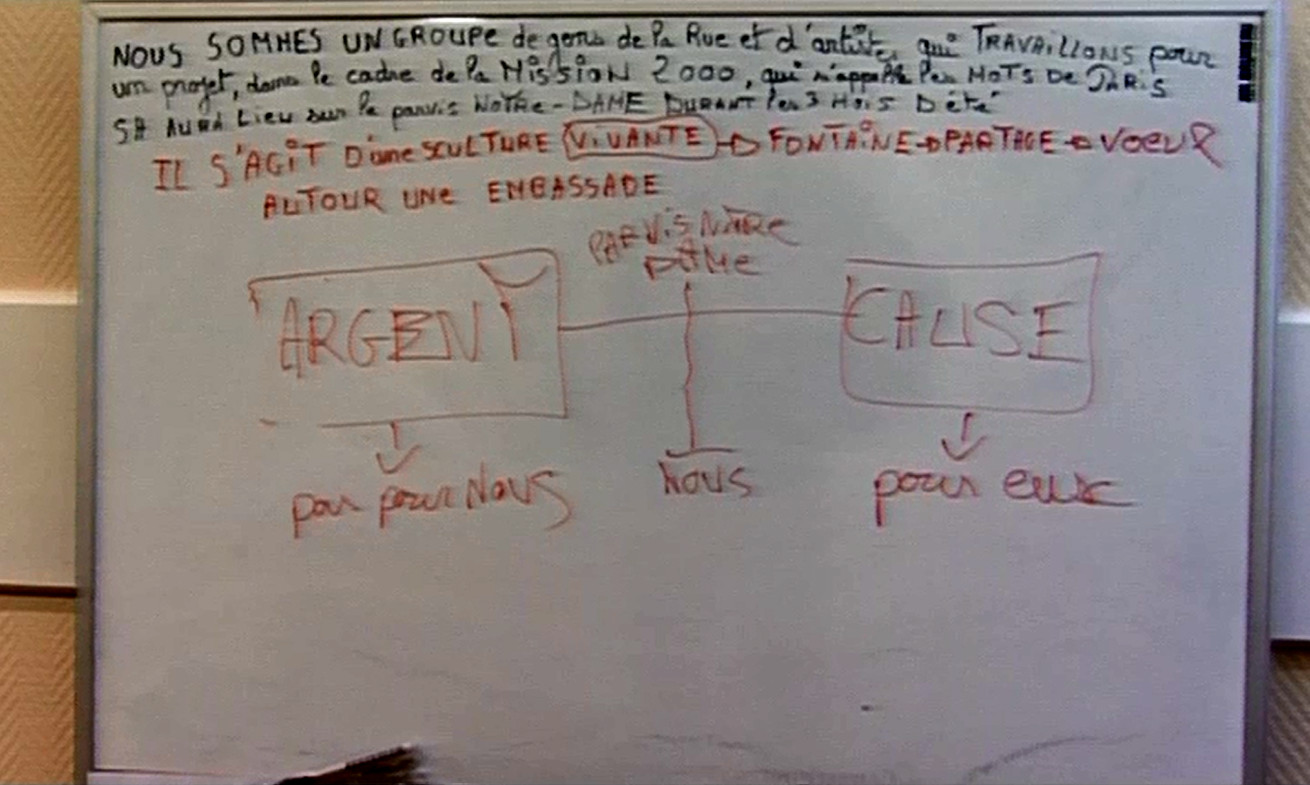 NOUS SOMMES UN GROUPE de gens de la Rue et d'artiste, qui TRAVAiLLONS pour
un projet, dans le cadre de la MiSSiON 2000, qui s'appelle les MOTS DE PARiS
SA AURA Lieu sur le parvis NOTRE-DAME DURANT les 3 MOiS D'été
IL S'AGiT D'une SCULTURE VIVANTE → FONTAiNE → PARTAGE → VOEUX
AUTOUR UNe EMBASSADE
PARViS NOTRe
DAMe
ARGENT
CAUSE
pas pour NOUS
NOUS
pour eux